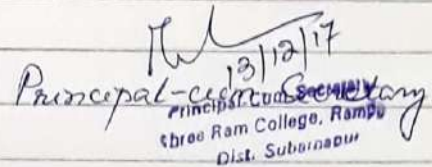 13/12/17
Principal-cum-Secretary
Principal-cum-Secretary
Shree Ram College, Rampur
Dist. Subarnapur